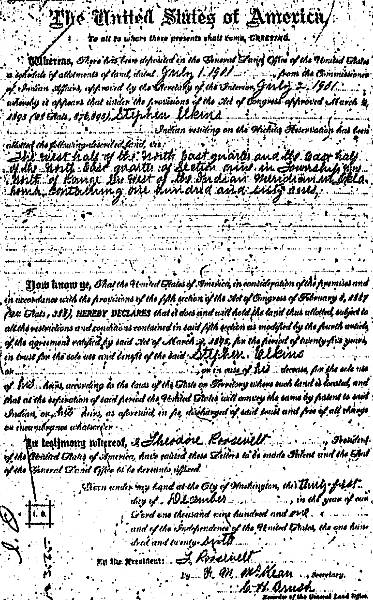 The United States of America,
To all to whom these presents shall come, GREETING:
Whereas, There has been deposited in the General Land Office of the United States
a schedule of allotments of land, dated July 1, 1901, from the Commissioner
of Indian Affairs, approved by the Secretary of the Interior July 2, 1901
whereby it appears that under the provisions of the Act of Congress approved March 2,
1895 (28 Stats., 876, 895), Stephen Elkins
Indian residing on the Wichita Reservation has been
allotted the following described land, viz:
The West half of the North East quarter and the East half
of the North West quarter of Section nine in Township
North of Range West of the Indian Meridian in Okla-
homa, containing one hundred and sixty acres.
Now know ye, That the United States of America, in consideration of the premises and
in accordance with the provisions of the fifth section of the Act of Congress of February 8, 1887
(24 Stats., 388), HEREBY DECLARES that it does and will hold the land thus allotted, subject to
all the restrictions and conditions contained in said fifth section as modified by the fourth article
of the agreement ratified by said Act of March 2, 1895, for the period of twenty-five years,
in trust for the sole use and benefit of the said Stephen Elkins
or in case of his decease, for the sole use
of his heirs, according to the laws of the State or Territory where such land is located, and
that at the expiration of said period the United States will convey the same by patent to said
Indian, or his heirs, as aforesaid, in fee, discharged of said trust and free of all charge
or incumbrance whatsoever.
In testimony whereof, I, Theodore Roosevelt, President
of the United States of America, have caused these Letters to be made Patent and the Seal
of the General Land Office to be hereunto affixed.
Given under my hand at the City of Washington, this thirty first
day of December, in the year of our
Lord one thousand nine hundred and one
and of the Independence of the United States, the one hun-
dred and twenty-sixth
By the President: T. Roosevelt
By F. M. McKean, Secretary.
C. H. Brush
Recorder of the General Land Office.